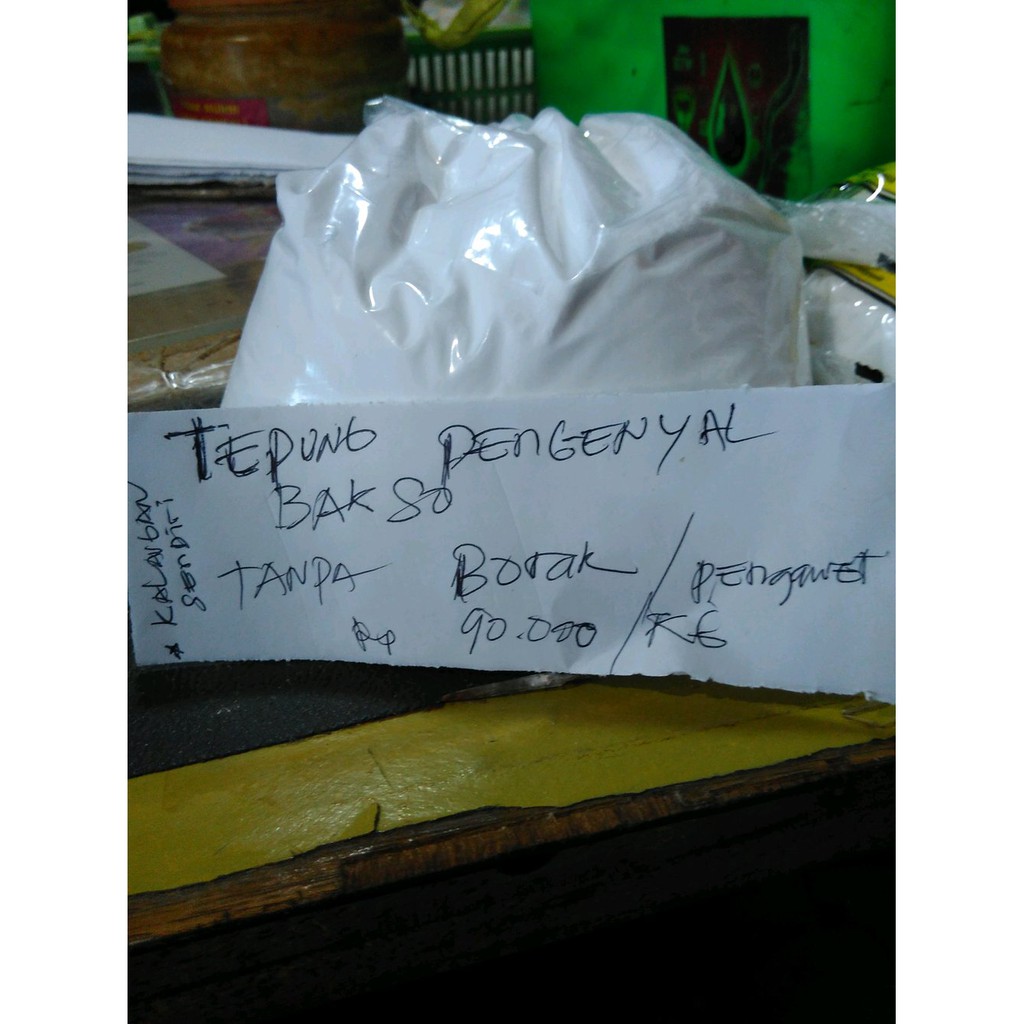 TEPUNG PENGENYAL
BAKSO
TANPA Borak / PENgawET
Rp 90.000 / KG
* KALANGAN
SENDIRI